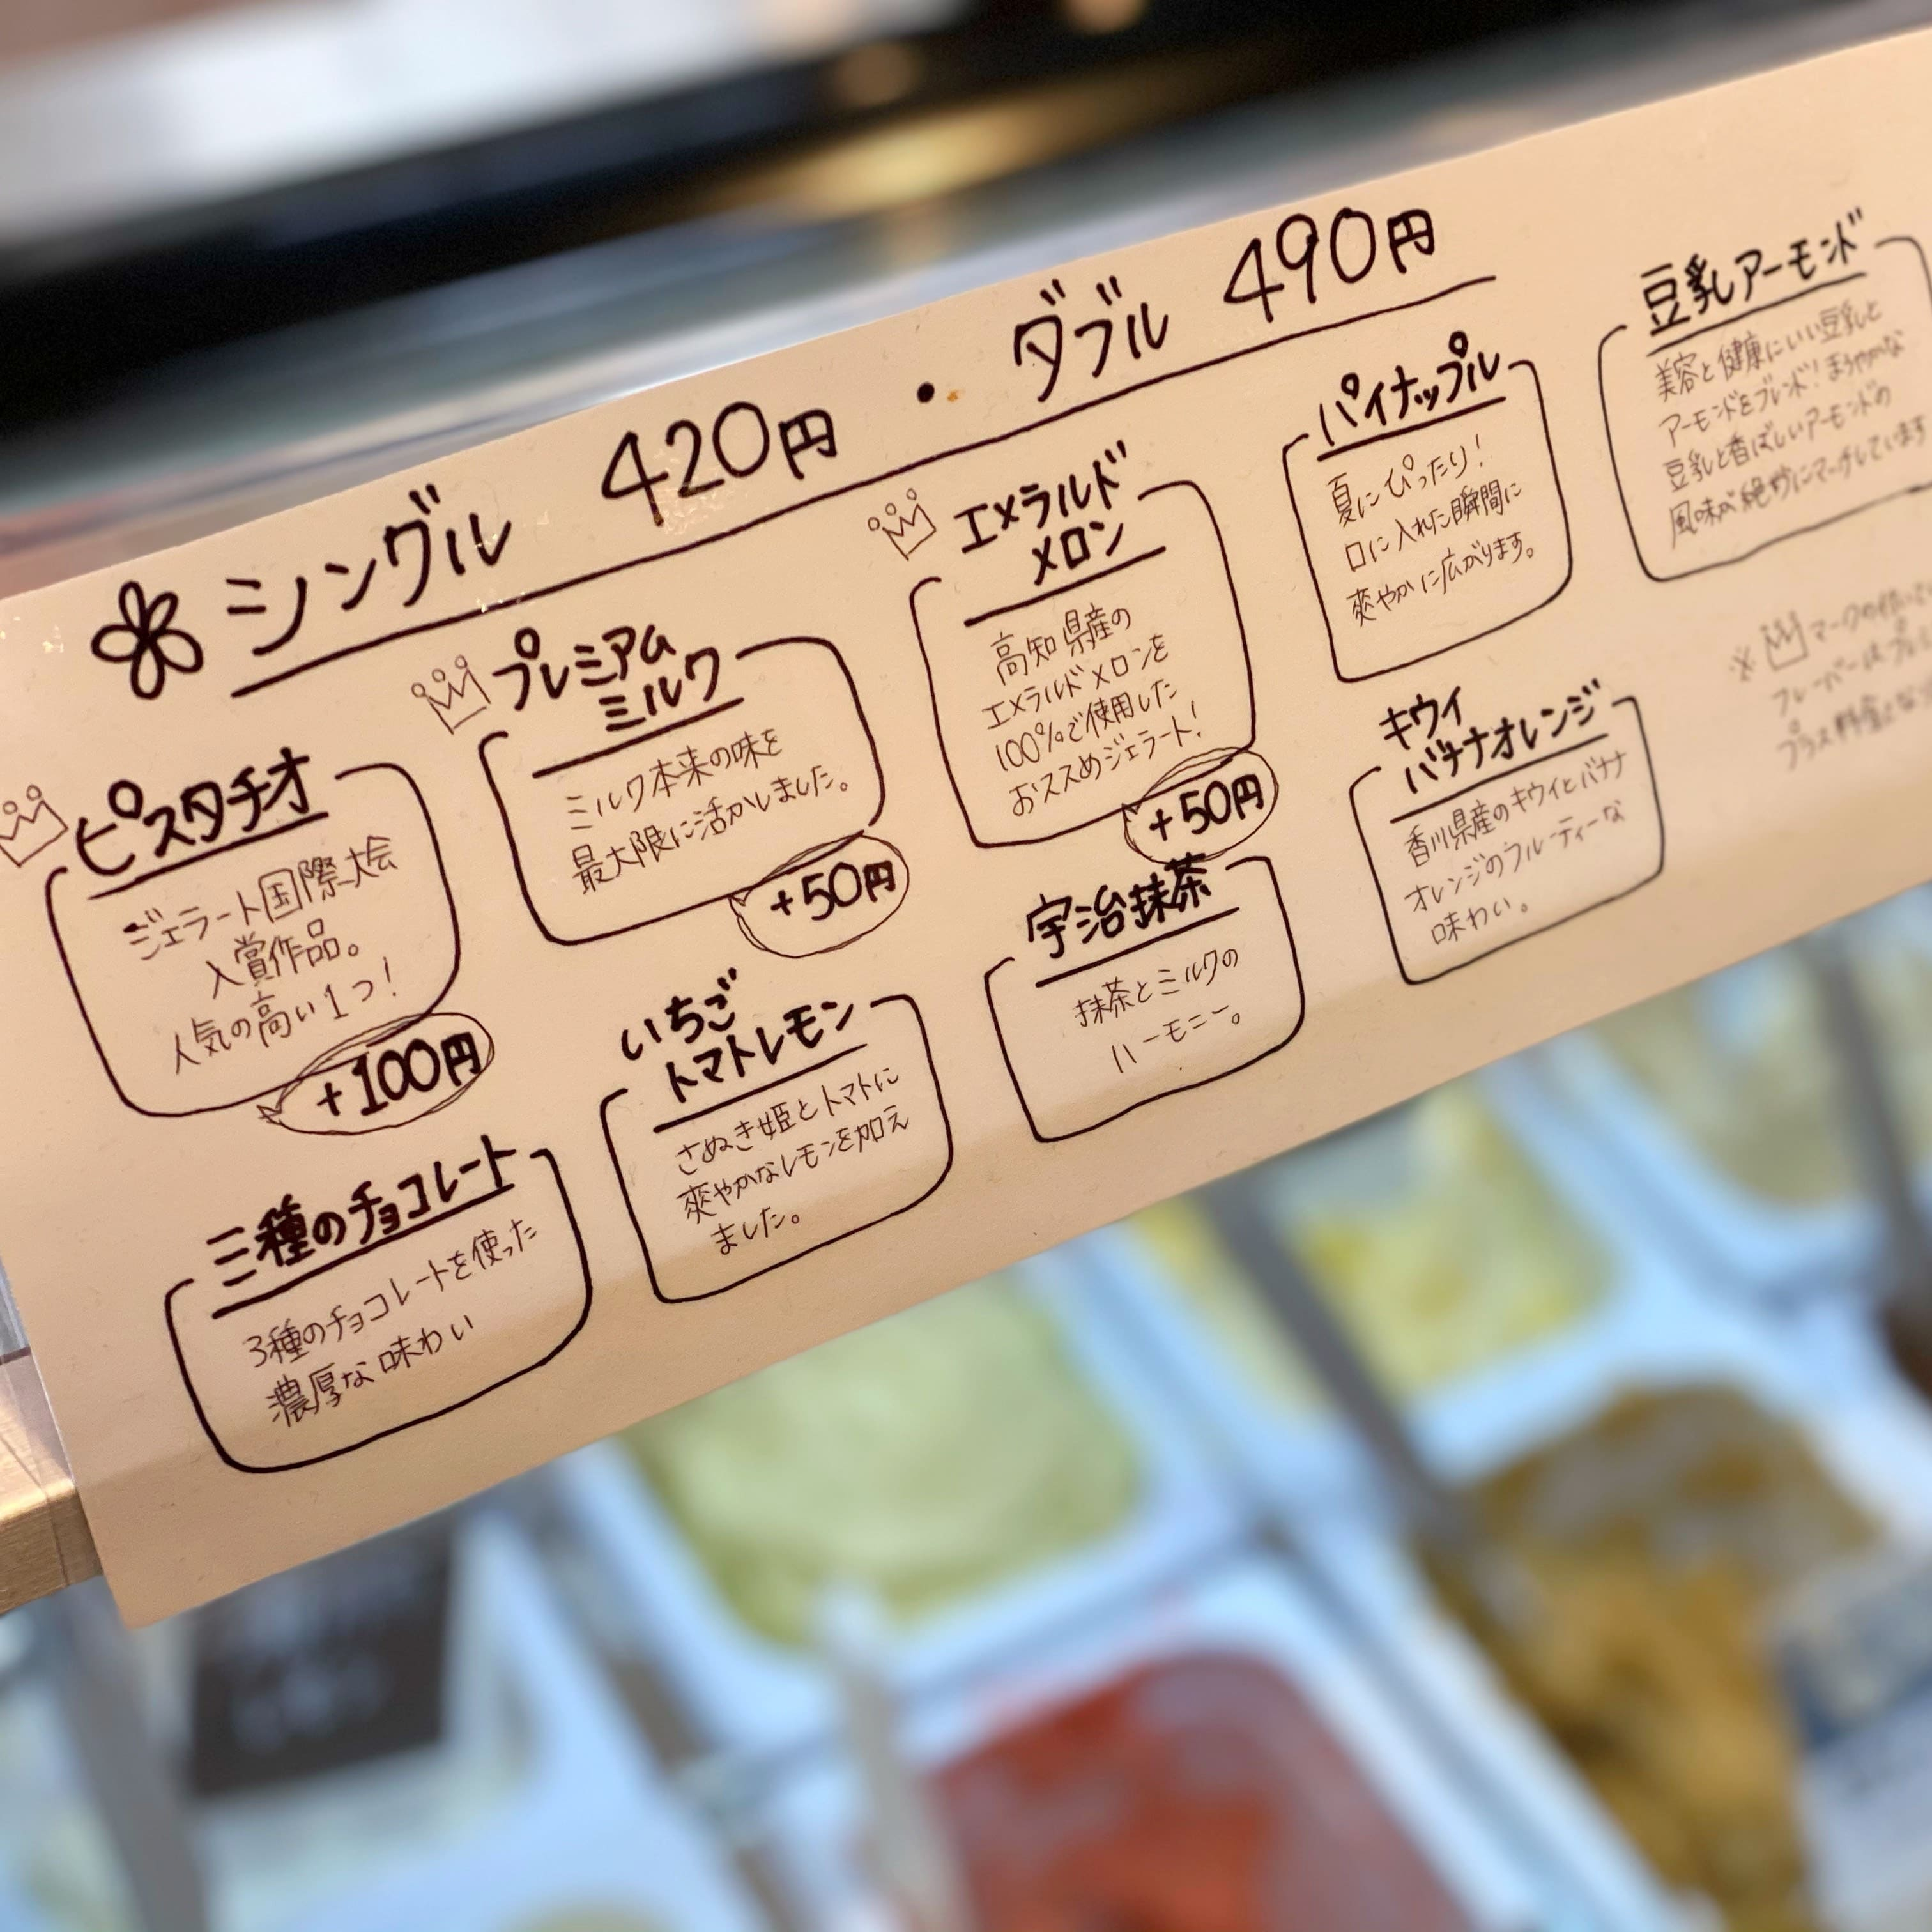 シングル 420円 ・ ダブル 490円
ピスタチオ
ジェラート国際大会
入賞作品。
人気の高い1つ!
+100円
プレミアム
ミルク
ミルク本来の味を
最大限に活かしました。
+50円
エメラルド
メロン
高知県産の
エメラルドメロンを
100%で使用した
おススめジェラート!
+50円
パイナップル
夏にぴったり!
口に入れた瞬間に
爽やかに広がります。
豆乳アーモンド
美容と健康にいい豆乳と
アーモンドをブレンド!まろやかな
豆乳と香ばしいアーモンドの
風味が絶妙にマッチしています
三種のチョコレート
3種のチョコレートを使った
濃厚な味わい
いちご
トマトレモン
さぬき姫とトマトに
爽やかなレモンを加え
ました。
宇治抹茶
抹茶とミルクの
ハーモニー。
キウイ
バナナオレンジ
香川県産のキウイとバナナ
オレンジのフルーティーな
味わい。
※ マークの付いてい
フレーバーはプレ
プラス料金とな